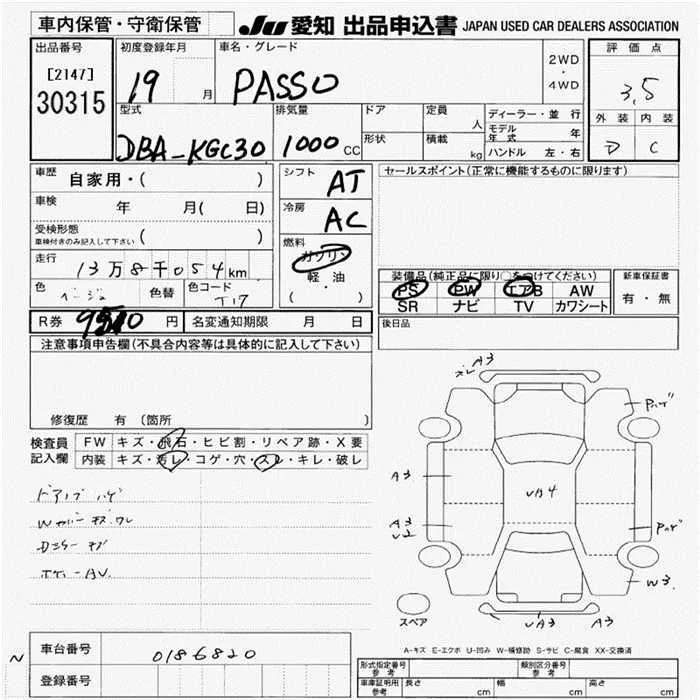 車内保管・守衛保管
JU 愛知 出品申込書 JAPAN USED CAR DEALERS ASSOCIATION
出品番号
[2147]
30315
初度登録年月
19 月
車名・グレード
PASSO
2WD
・
4WD
評価点
3.5
外装 内装
D C
型式
DBA-KGC30
排気量
1000 CC
ドア
形状
定員
人
積載
kg
ディーラー・並行
モデル年式 年
ハンドル 左・右
車歴
自家用・( )
車検
年 月( 日)
受検形態
車検付きのみ記入して下さい ( )
走行
13万8千054km
色
ベージュ
色替
色コード
T17
シフト
AT
冷房
AC
燃料
ガソリン
・
軽・油
( )
セールスポイント(正常に機能するものに限ります)
装備品(純正品に限り○をつけてください)
PS PW エアB AW
SR ナビ TV カワシート
新車保証書
有・無
後日品
R券 9510 円
名変通知期限 月 日
注意事項申告欄(不具合内容等は具体的に記入して下さい)
修復歴 有 〔箇所 〕
検査員記入欄
FW キズ・飛石・ヒビ割・リペア跡・X要
内装 キズ・汚レ・コゲ・穴・スレ・キレ・破レ
ドアノブ ハゲ
Dミラー キズ
A3
Pハゲ
A3
UA4
A3
U2
Pハゲ
W3
UA3
A3
スペア
A-キズ E-エクボ U-凹み W-補修跡 S-サビ C-腐食 XX-交換済
車台番号
0186820
登録番号
形式指定番号
参考
類別区分番号
参考
車庫証明用
参考
長さ cm
幅 cm
高さ cm